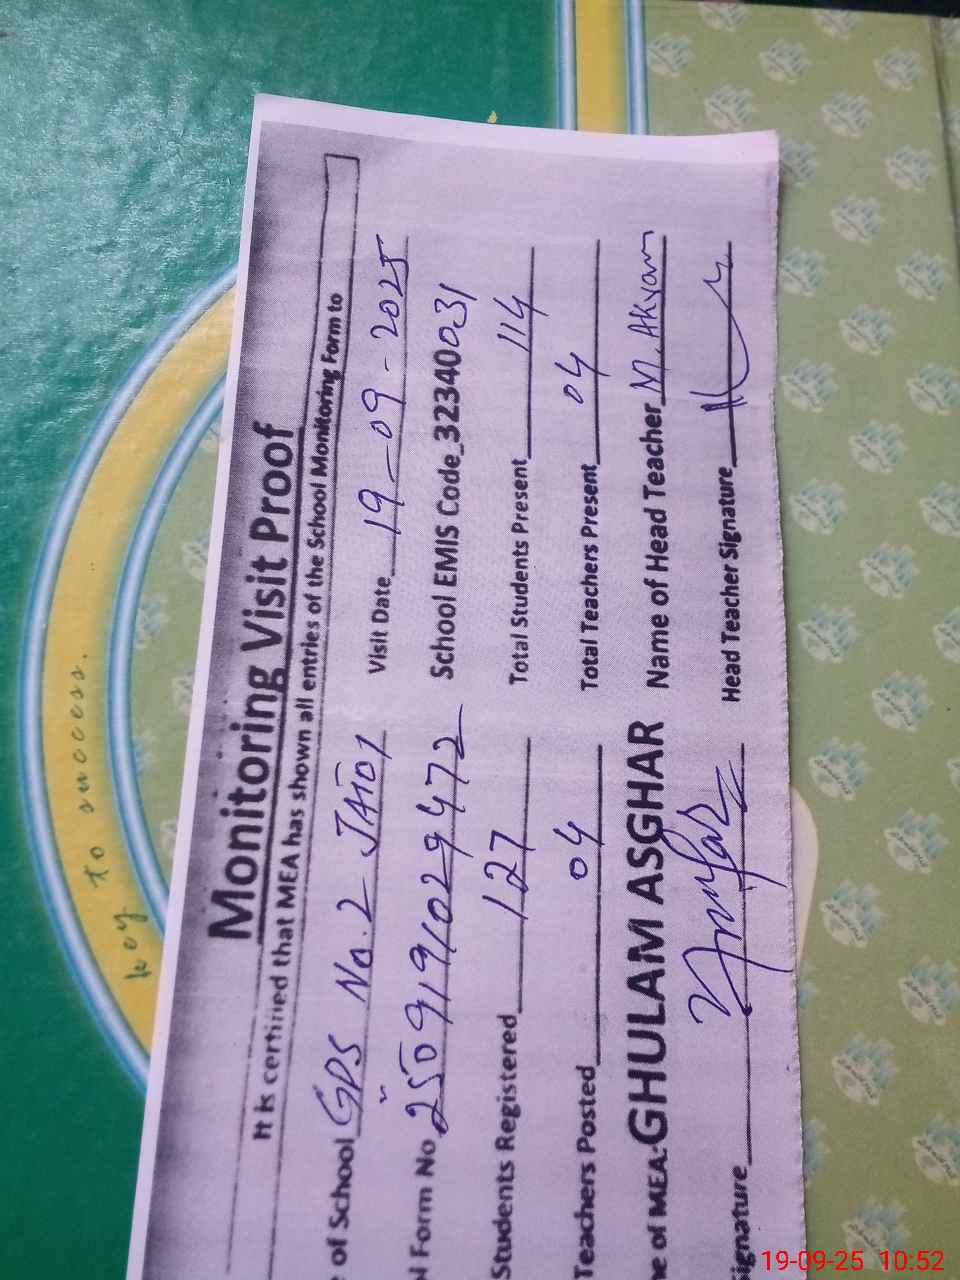 Monitoring Visit Proof
It is certified that MEA has shown all entries of the School Monitoring Form to
of School GPS No. 2 JATOI Visit Date 19-09-2025
Form No 2509191029472 School EMIS Code 32340031
Students Registered 127 Total Students Present 114
Teachers Posted 04 Total Teachers Present 04
e of MEA: GHULAM ASGHAR Name of Head Teacher M. Akram
ignature Head Teacher Signature
key to success.
19-09-25 10:52